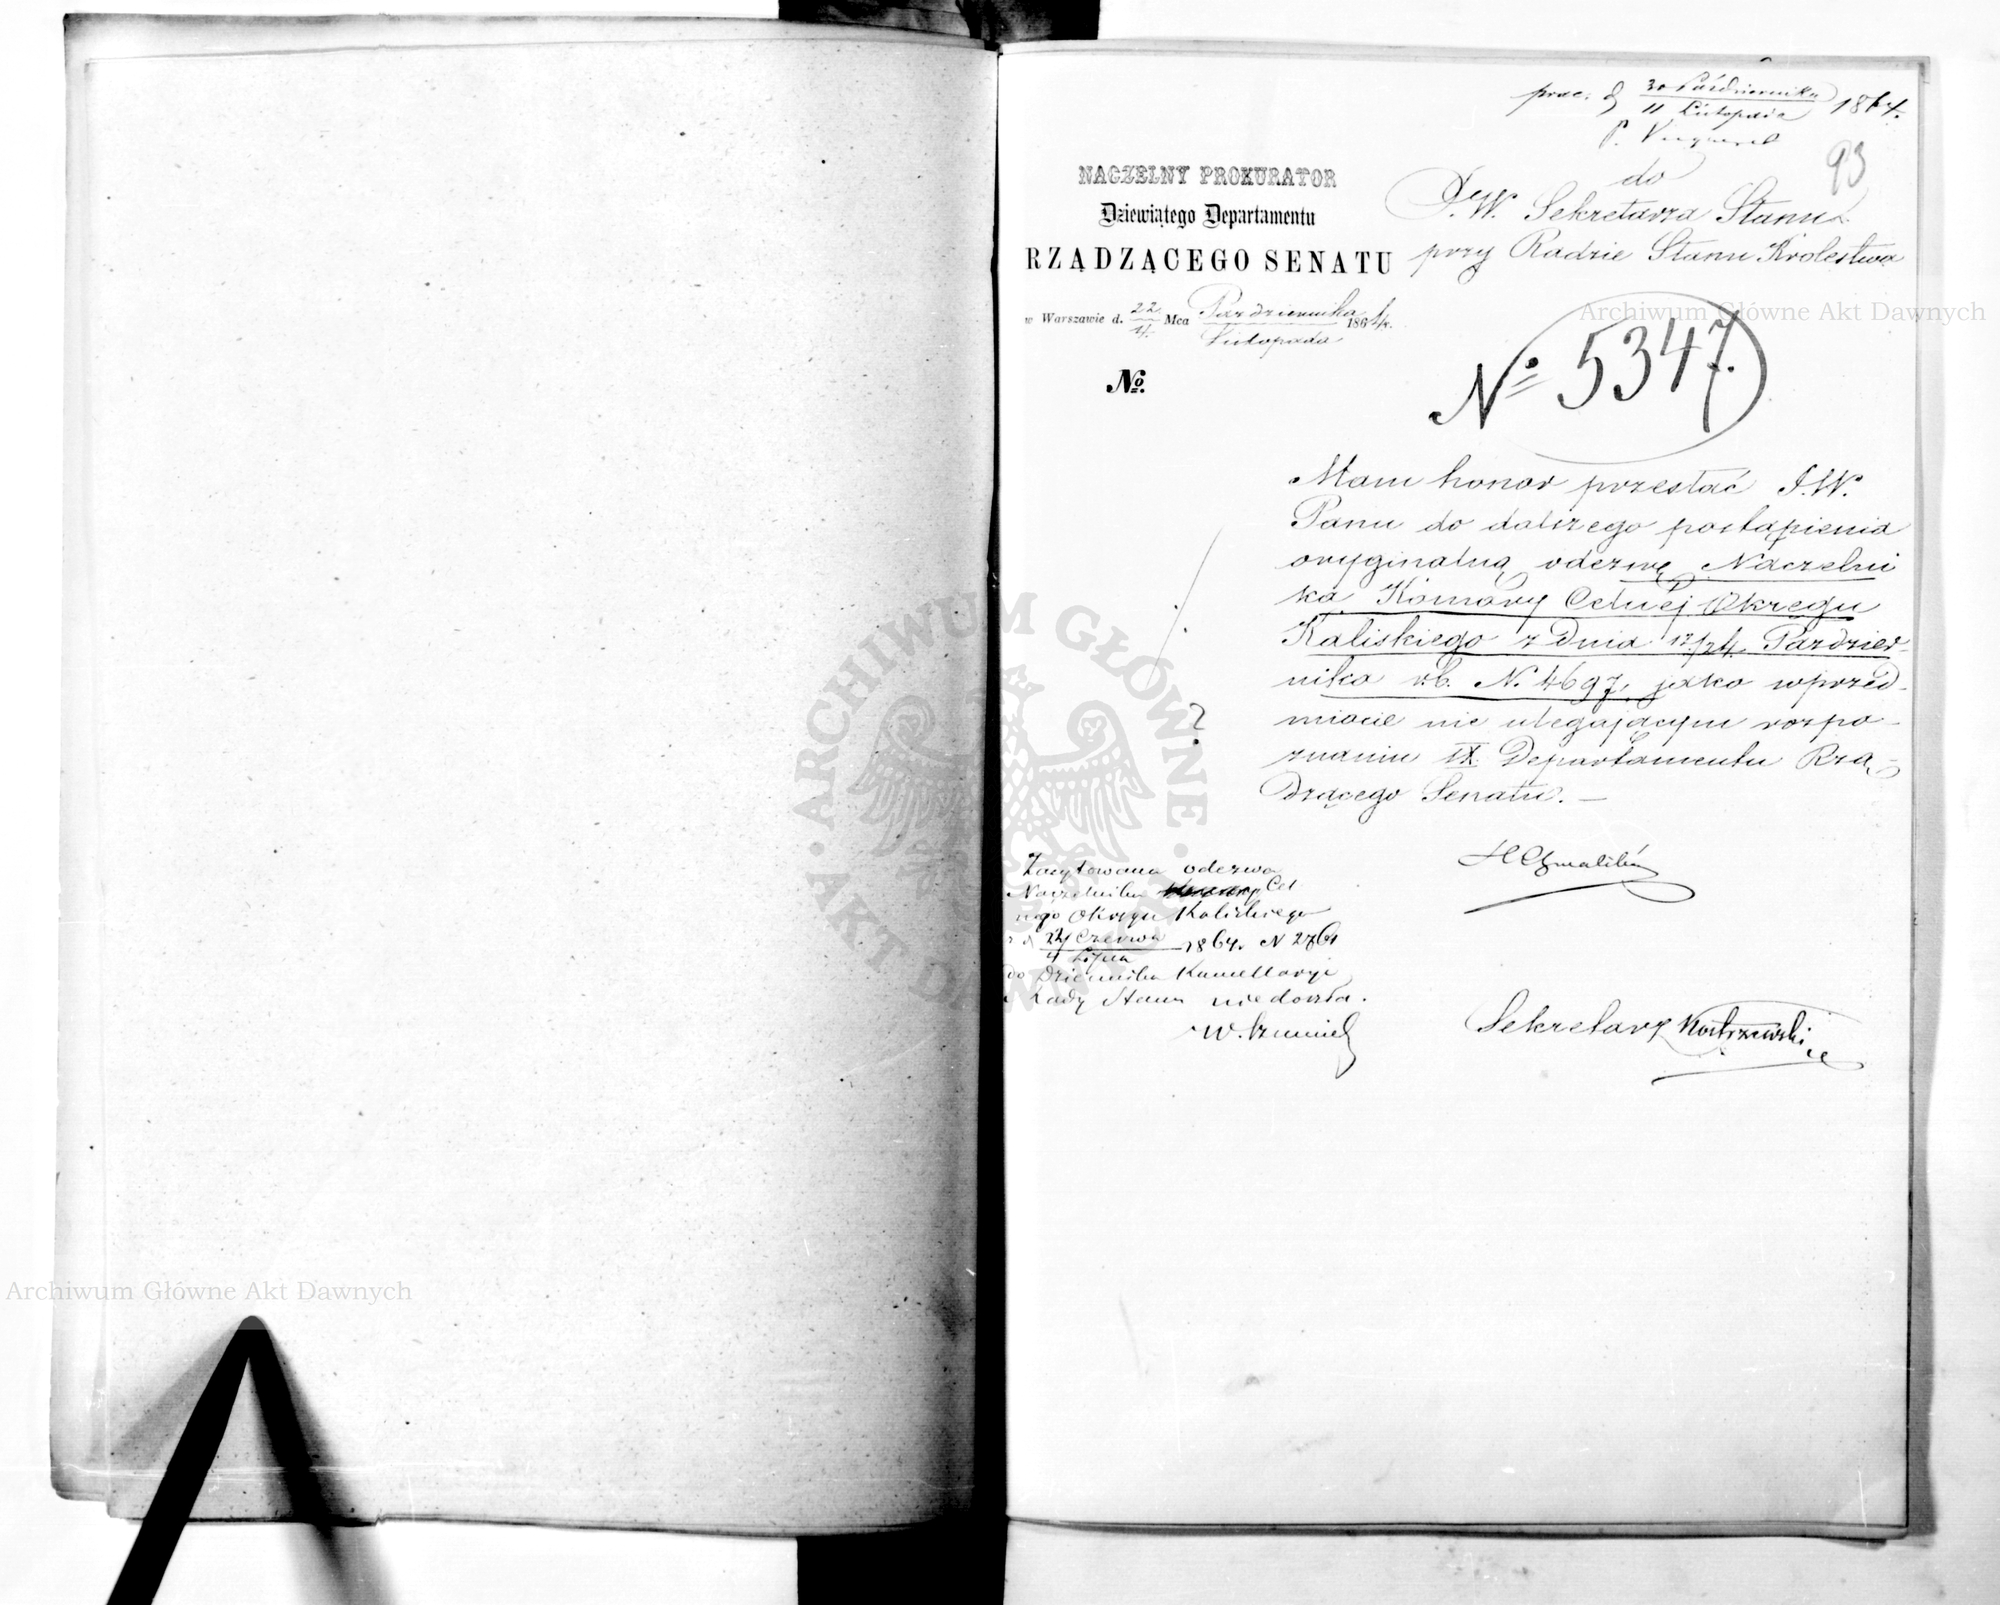 30 Października
prez. d. 11 Listopada 1864.
93
NACZELNY PROKURATOR
Dziewiątego Departamentu
RZĄDZĄCEGO SENATU
w Warszawie d. 22/4. Mca Października/Listopada 1864r.
No.
do
J.W. Sekretarza Stanu
przy Radzie Stanu Królestwa
No 5347.
Mam honor przesłać J.W.
Panu do dalszego postąpienia
oryginalną odezwę Naczelni
ka Komory Celnej Okręgu
Kaliskiego z Dnia 12/24 Paździer-
nika r.b. N. 4697, jako w przed-
miocie nie ulegającym rozpo-
znaniu IX. Departamentu Rzą-
dzącego Senatu. —
?
Sekretarz Kostrzewski
Zacytowana odezwa
Naczelnika Cel
nego Okręgu Kaliskiego
z d. 22 Czerwca/4 Lipca 1864r. N 2761
do Dziennika Kancellaryi
Rady Stanu niedoszła.
Archiwum Główne Akt Dawnych
Archiwum Główne Akt Dawnych
ARCHIWUM GŁÓWNE AKT DAWNYCH